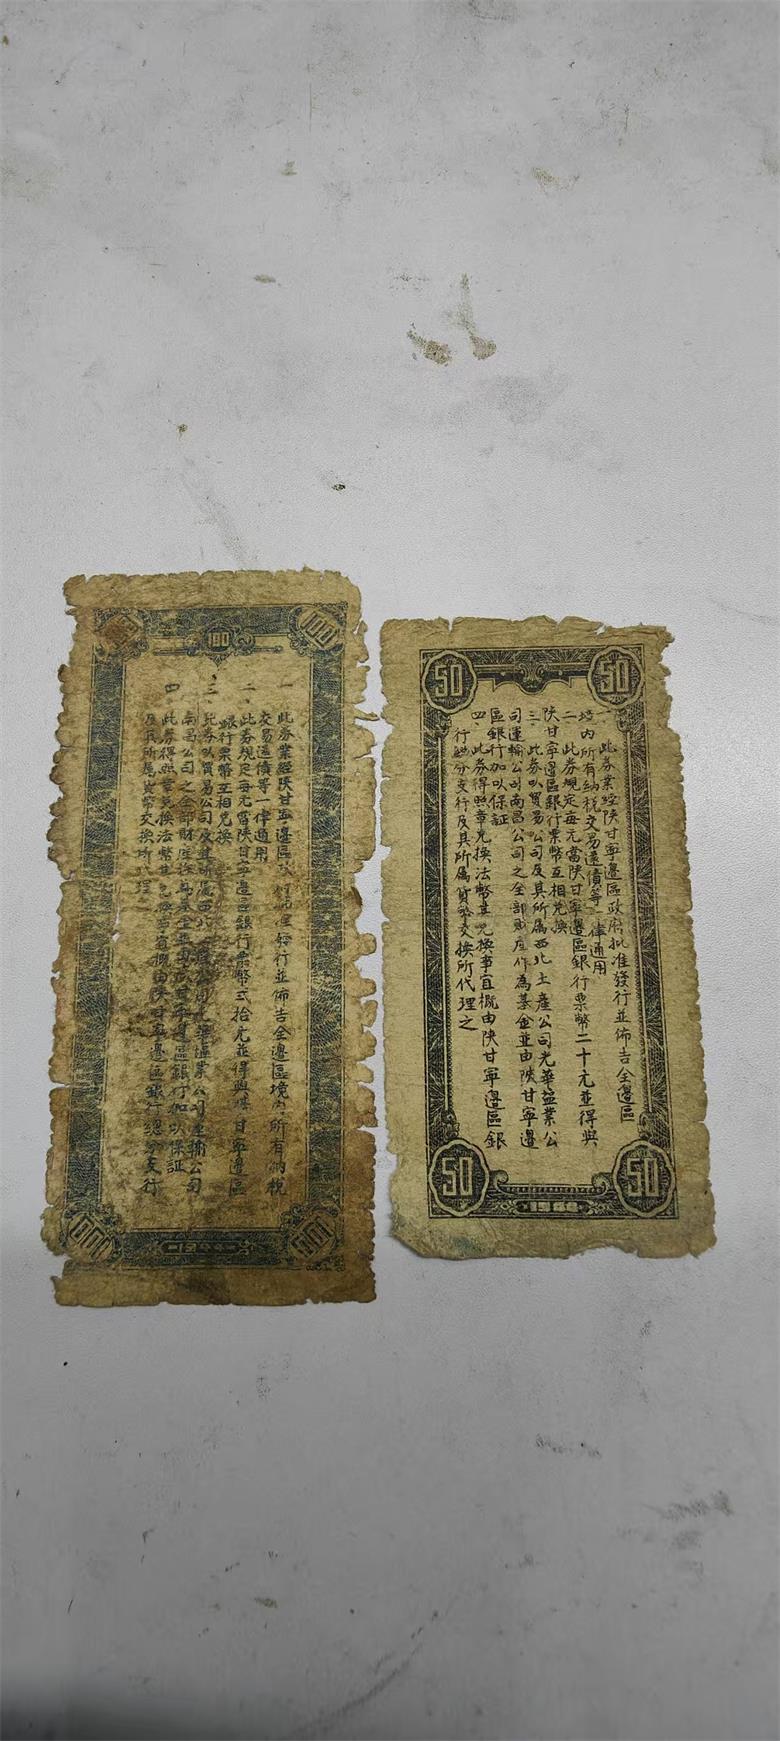 100
100
一、此券業經陝甘寧邊區
發行並佈告全邊區境內所有納稅
交易還債等一律通用
二、此券規定每元當陝甘寧邊區銀行票幣貳拾元並得與陝甘寧邊區
銀行票幣互相兌換
三、此券以貿易公司及其所屬西北
公司運輸公司
南昌公司之全部財產作為基金並由陝甘寧邊區銀行加以保証
四、此券得照章兌換法幣其兌換事宜概由陝甘寧邊區銀行總分支行
及其所屬貨幣交換所代理之
100
100
50
50
一、此券業經陝甘寧邊區政府批准發行並佈告全邊區
境內所有納稅交易還債等一律通用
二、此券規定每元當陝甘寧邊區銀行票幣二十元並得與
陝甘寧邊區銀行票幣互相兌換
三、此券以貿易公司及其所屬西北土產公司光華鹽業公
司運輸公司南昌公司之全部財產作為基金並由陝甘寧邊
區銀行加以保証
四、此券得照章兌換法幣其兌換事宜概由陝甘寧邊區銀
行總分支行及其所屬貨幣交換所代理之
50
50